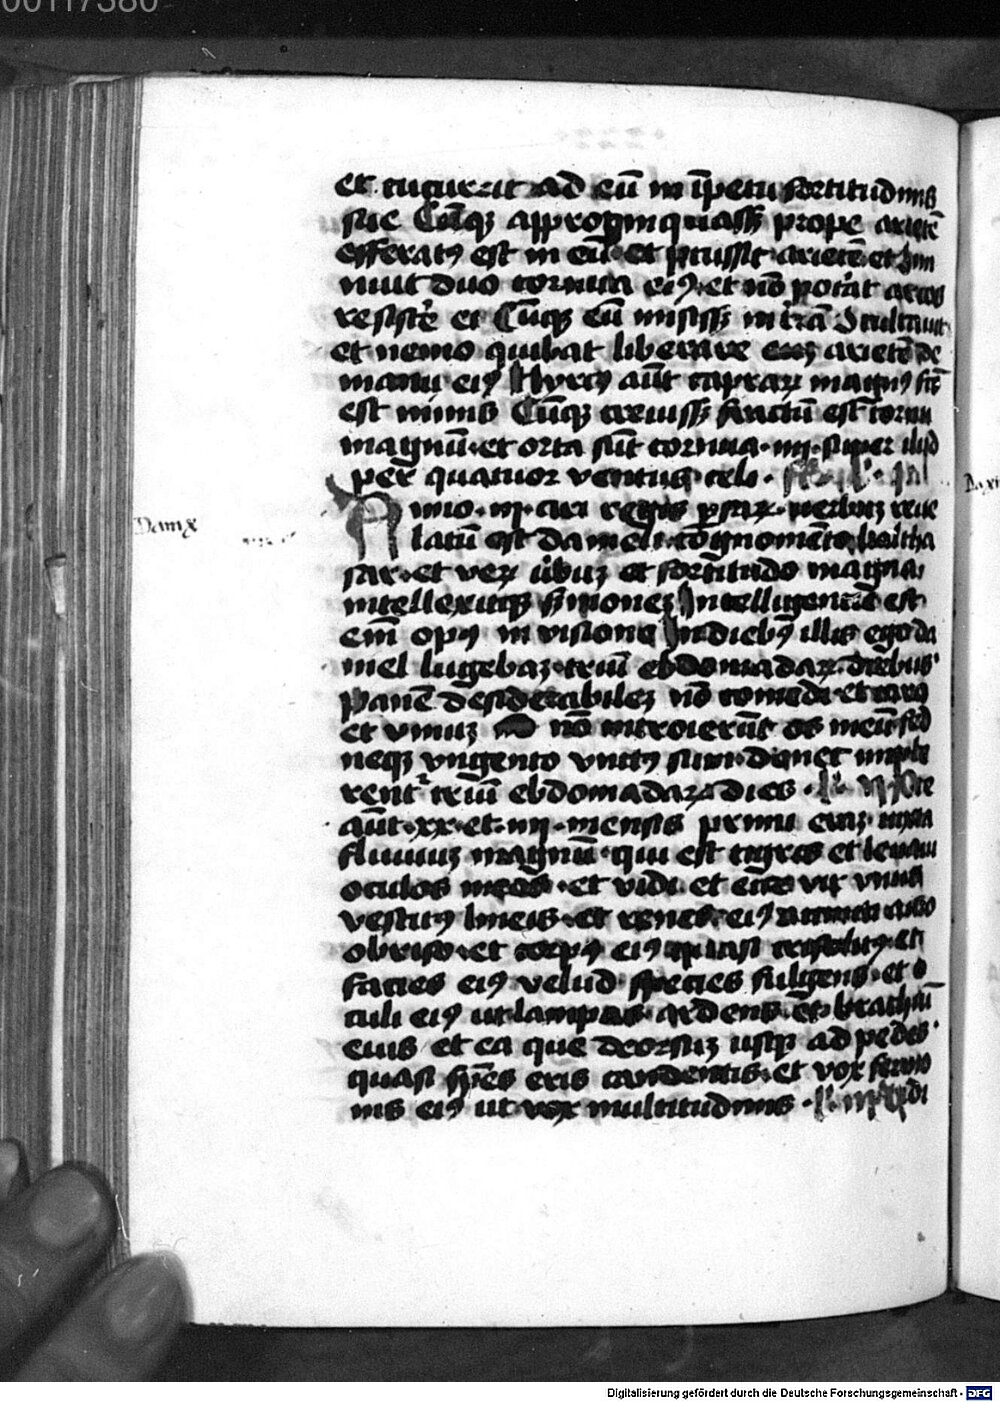 00117380
et cucurrit ad eū in īpetu fortitudinis
sue Cūqꝫ appropinquassꝫ prope arietē
efferatꝰ est in eū et ꝑcussit arietē et
nuit duo cornua eiꝰ et nō pot̄at aries
resist̓e et Cūqꝫ eū misissꝫ in t̄rā
et nemo quibat liberare eūꝫ arietē de
manu eiꝰ Hyrcꝰ aūt caprarꝝ magnꝰ fcꝰ
est nimis Cūqꝫ creuissꝫ fractū est cornu
magnū et orta sūt cornua iiij super illud
per quatuor ventus celi
Anno iij ciri regis ꝑsarꝝ verbuꝫ reue
latū est danieli cōgnomēto baltha
Dani x
sar et verꝝ v̓buꝫ et fortitudo magna
intellexitqꝫ sermoneꝫ Intelligentia est
em̄ opꝰ in visione In diebꝰ illis ego da
niel lugebaꝫ triū ebdomadarꝝ diebus
panē desiderabileꝫ nō comedi et caro
et vinuꝫ nō introierūt os meū sed
neqꝫ vngento vnctꝰ sum donec imple
rent̓ triū ebdomadarꝝ dies
aūt xx et iiij mensis primi eraꝫ iuxta
fluuiuꝫ magnū qui est tigris et leuaui
oculos meos et vidi et ecce vir vnus
vestitꝰ lineis et renes eiꝰ accincti auro
obriso et corpꝰ eiꝰ quasi crisolitꝰ et
facies eiꝰ velud species fulgens et o
culi eiꝰ ut lampas ardens et brachiū
eius et ea que deorsuꝫ usqꝫ ad pedes
quasi sp̄es eris candentis et vox sermo
nis eiꝰ ut vox multitudinis
Digitalisierung gefördert durch die Deutsche Forschungsgemeinschaft - DFG